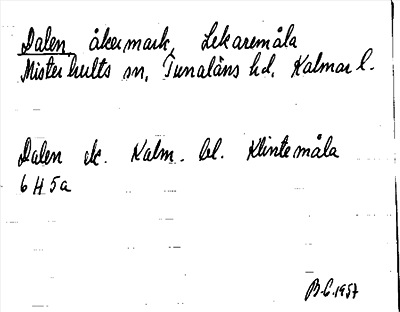 Dalen åkermark, Lekaremåla
Misterhults sn, Tunaläns hd, Kalmar l.
Dalen ek. Kalm. bl. Klintemåla
6 H 5a
B-C. 1957